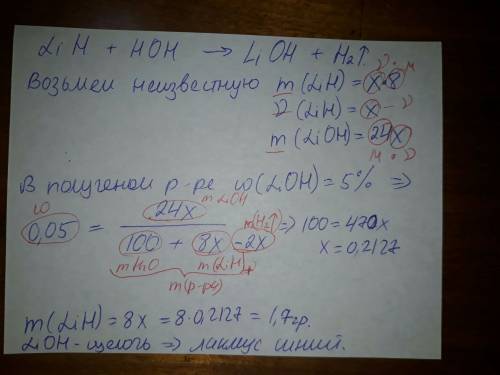 LiH + HOH → LiOH + H₂↑
ν · M
Возьмем неизвестную m(LiH) = x·8
ν(LiH) = x – ν
m(LiOH) = 24x
M · ν
В полученом р-ре ω(LiOH) = 5% ⇒
ω m LiOH
0,05 = 24x / (100 + 8x – 2x) m(H₂↑) ⇒ 100 = 470x
x = 0,2127
m H₂O m(LiH)
m(р-ра)
m(LiH) = 8x = 8·0,2127 = 1,7гр.
LiOH - щелочь ⇒ лакмус синий.